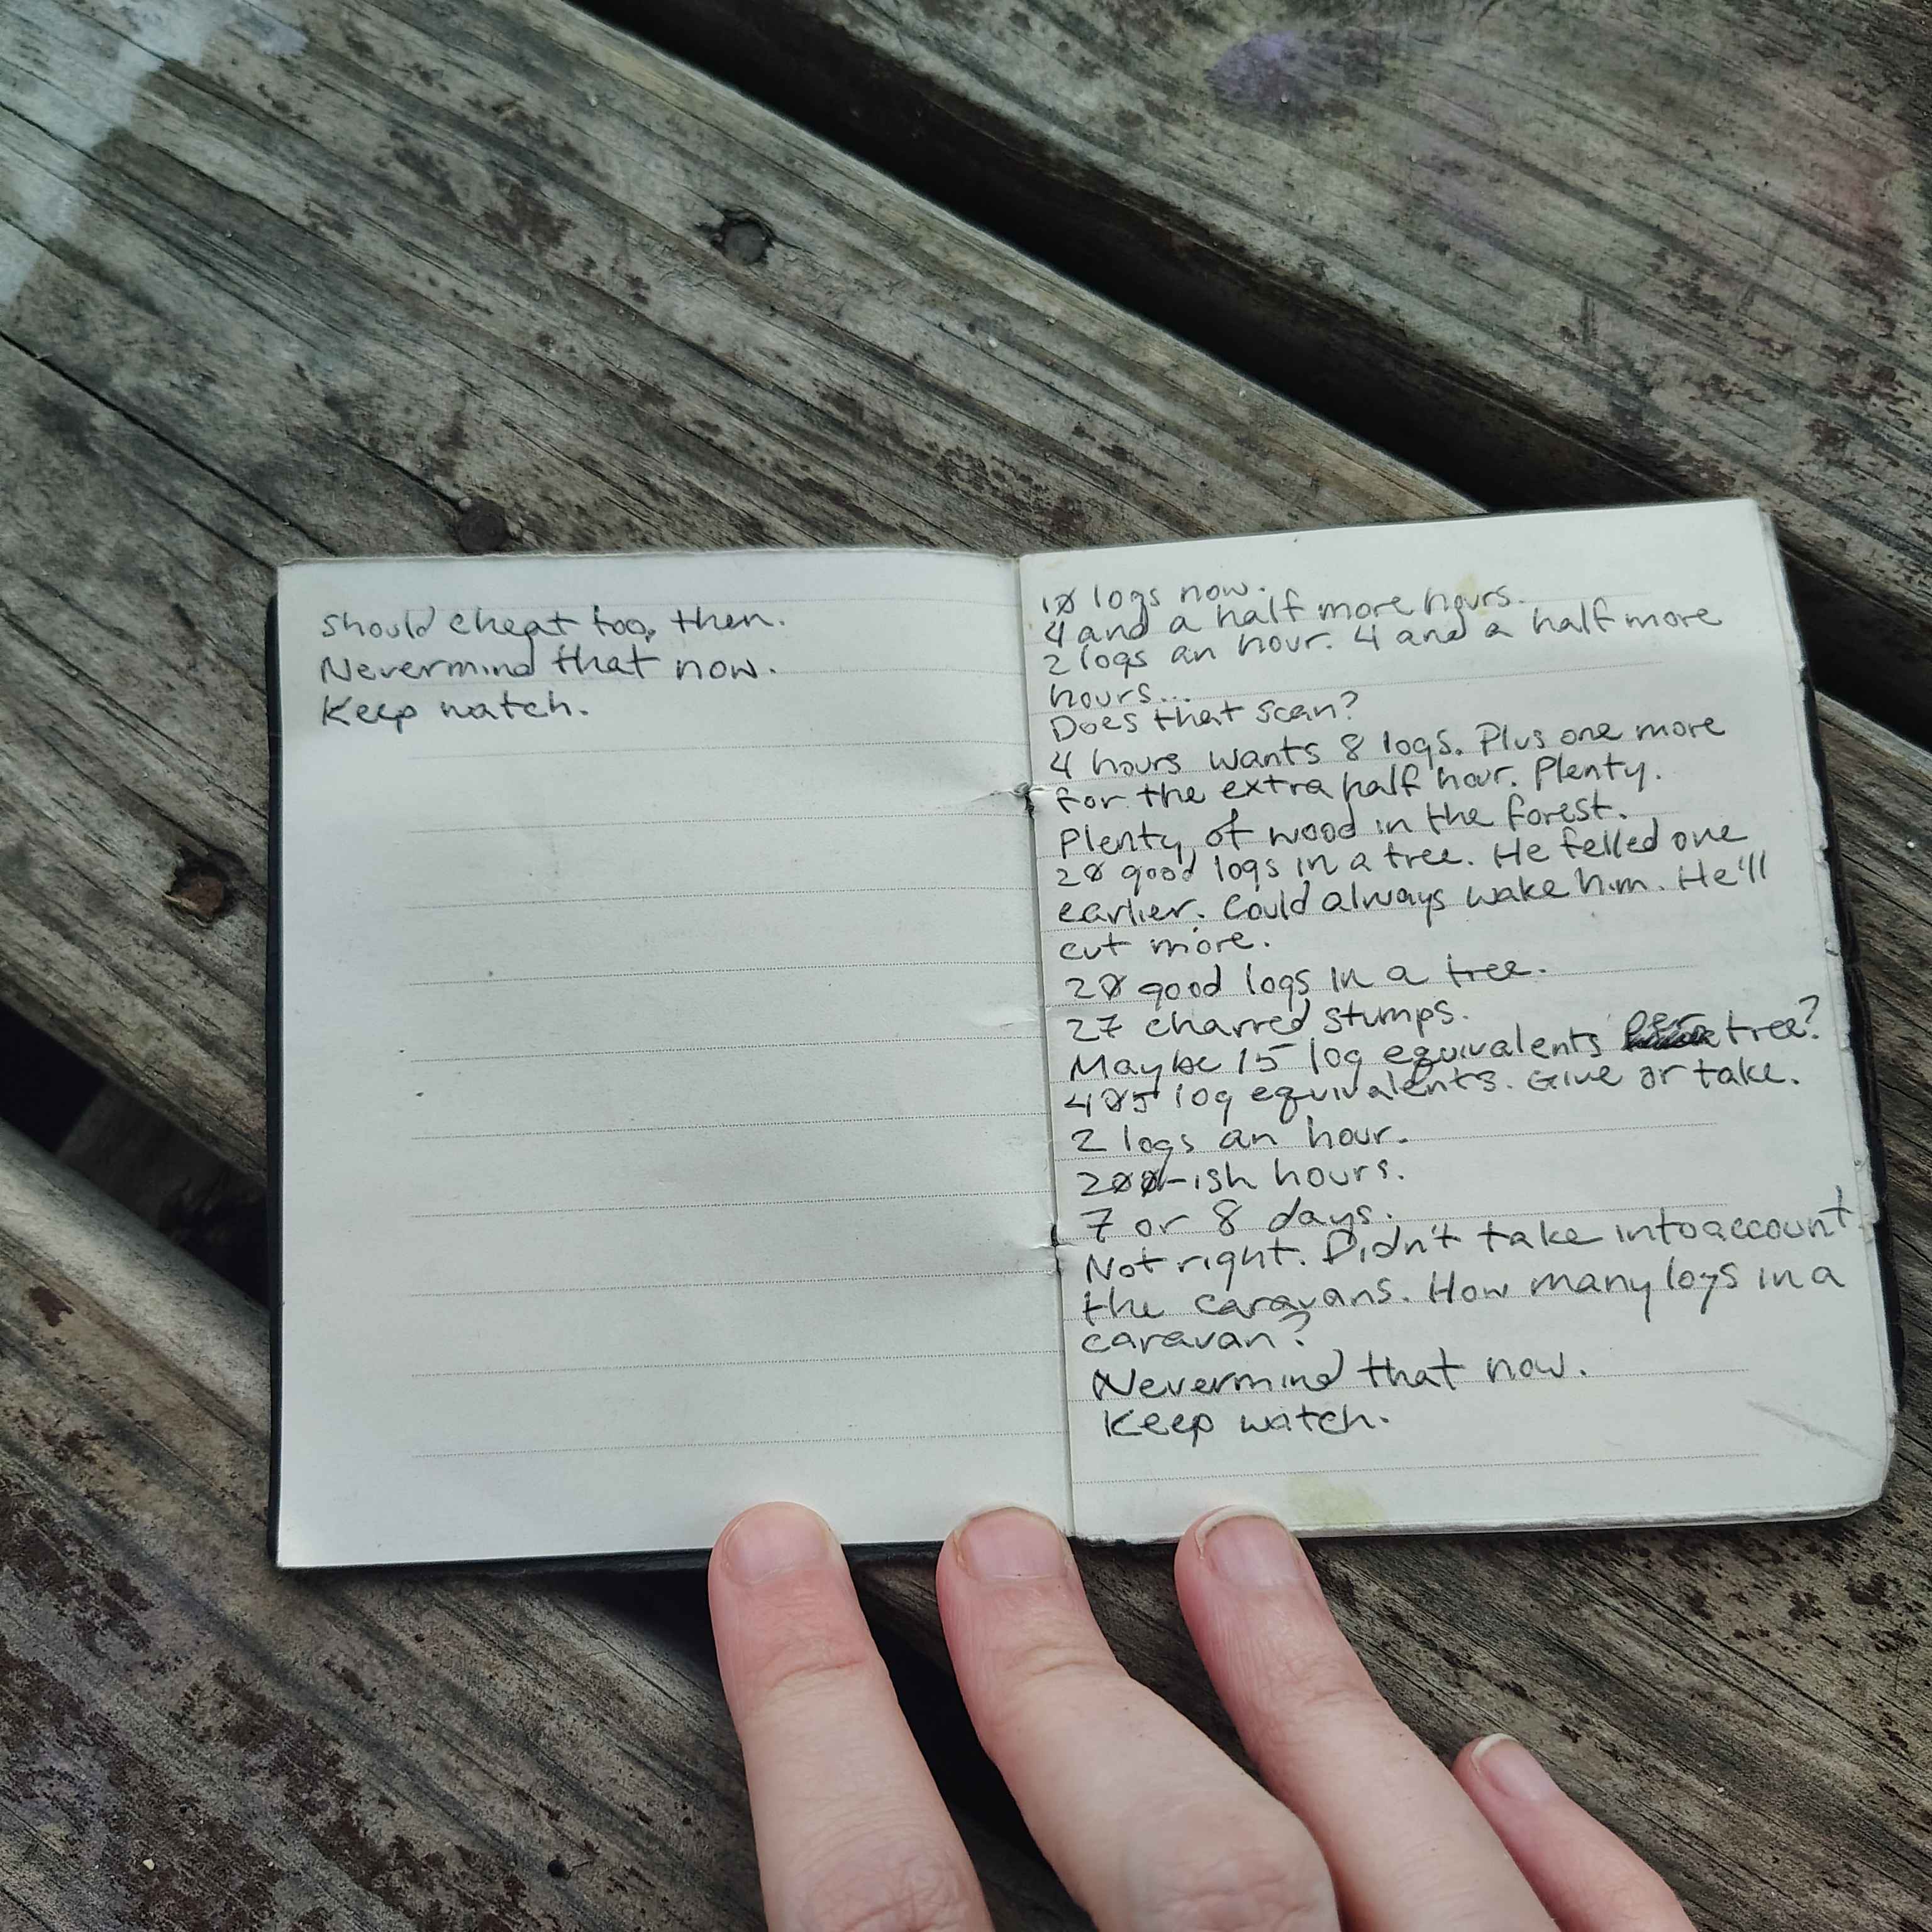 should cheat too, then.
Nevermind that now.
Keep watch.
10 logs now.
4 and a half more hours.
2 logs an hour. 4 and a half more
hours...
Does that scan?
4 hours wants 8 logs. Plus one more
for the extra half hour. Plenty.
Plenty of wood in the forest.
20 good logs in a tree. He felled one
earlier. Could always wake him. He'll
cut more.
20 good logs in a tree.
27 charred stumps.
Maybe 15 log equivalents per tree?
405 log equivalents. Give or take.
2 logs an hour.
200-ish hours.
7 or 8 days.
Not right. Didn't take into account
the caravans. How many logs in a
caravan?
Nevermind that now.
Keep watch.